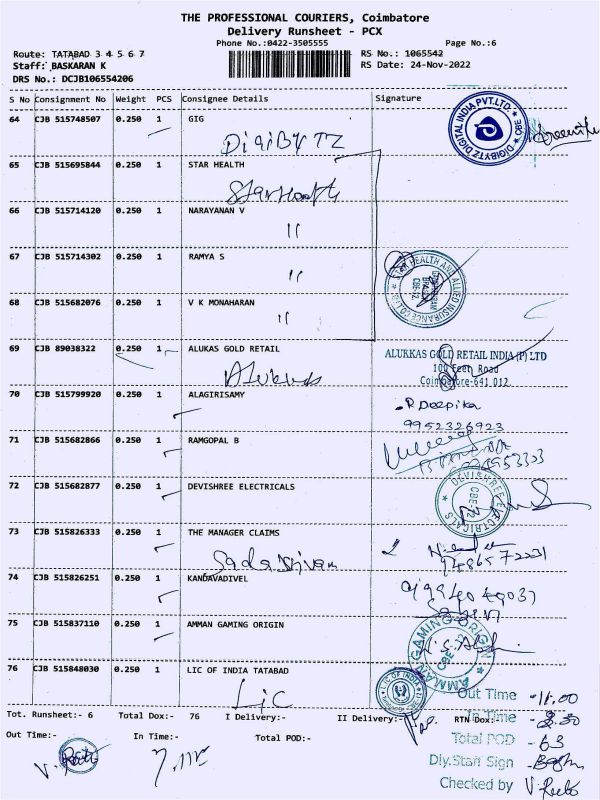 THE PROFESSIONAL COURIERS, Coimbatore
Delivery Runsheet - PCX
Phone No.:0422-3505555 Page No.:6
Route: TATABAD 3 4 5 6 7 RS No.: 1065542
Staff: BASKARAN K RS Date: 24-Nov-2022
DRS No.: DCJB106554206
S No Consignment No Weight PCS Consignee Details Signature
64 CJB 515748507 0.250 1 GIG
DIGIBYTZ
DIGIBYTZ DIGITAL INDIA PVT.LTD. CBE
65 CJB 515695844 0.250 1 STAR HEALTH
Starhealth
66 CJB 515714120 0.250 1 NARAYANAN V
"
67 CJB 515714302 0.250 1 RAMYA S
"
STAR HEALTH AND ALLIED INSURANCE CO.
68 CJB 515682076 0.250 1 V K MONAHARAN
"
69 CJB 89038322 0.250 1 ALUKAS GOLD RETAIL
ALUKKAS GOLD RETAIL INDIA (P) LTD
100 Feet Road
Coimbatore-641 012
Alukkas
70 CJB 515799920 0.250 1 ALAGIRISAMY
R Deepika
9952326923
71 CJB 515682866 0.250 1 RAMGOPAL B
72 CJB 515682877 0.250 1 DEVISHREE ELECTRICALS
DEVISHREE ELECTRICALS CBE-12
73 CJB 515826333 0.250 1 THE MANAGER CLAIMS
Sadasivam
74 CJB 515826251 0.250 1 KANDAVADIVEL
75 CJB 515837110 0.250 1 AMMAN GAMING ORIGIN
AMMAN GAMING ORIGIN
76 CJB 515848030 0.250 1 LIC OF INDIA TATABAD
LIC
LIC OF INDIA
Out Time - 11.00
Tot. Runsheet:- 6 Total Dox:- 76 I Delivery:- II Delivery:- RTN Dox:-
In Time - 2.30
Out Time:- In Time:- Total POD:-
Total POD - 63
Dly.Staff Sign
Checked by